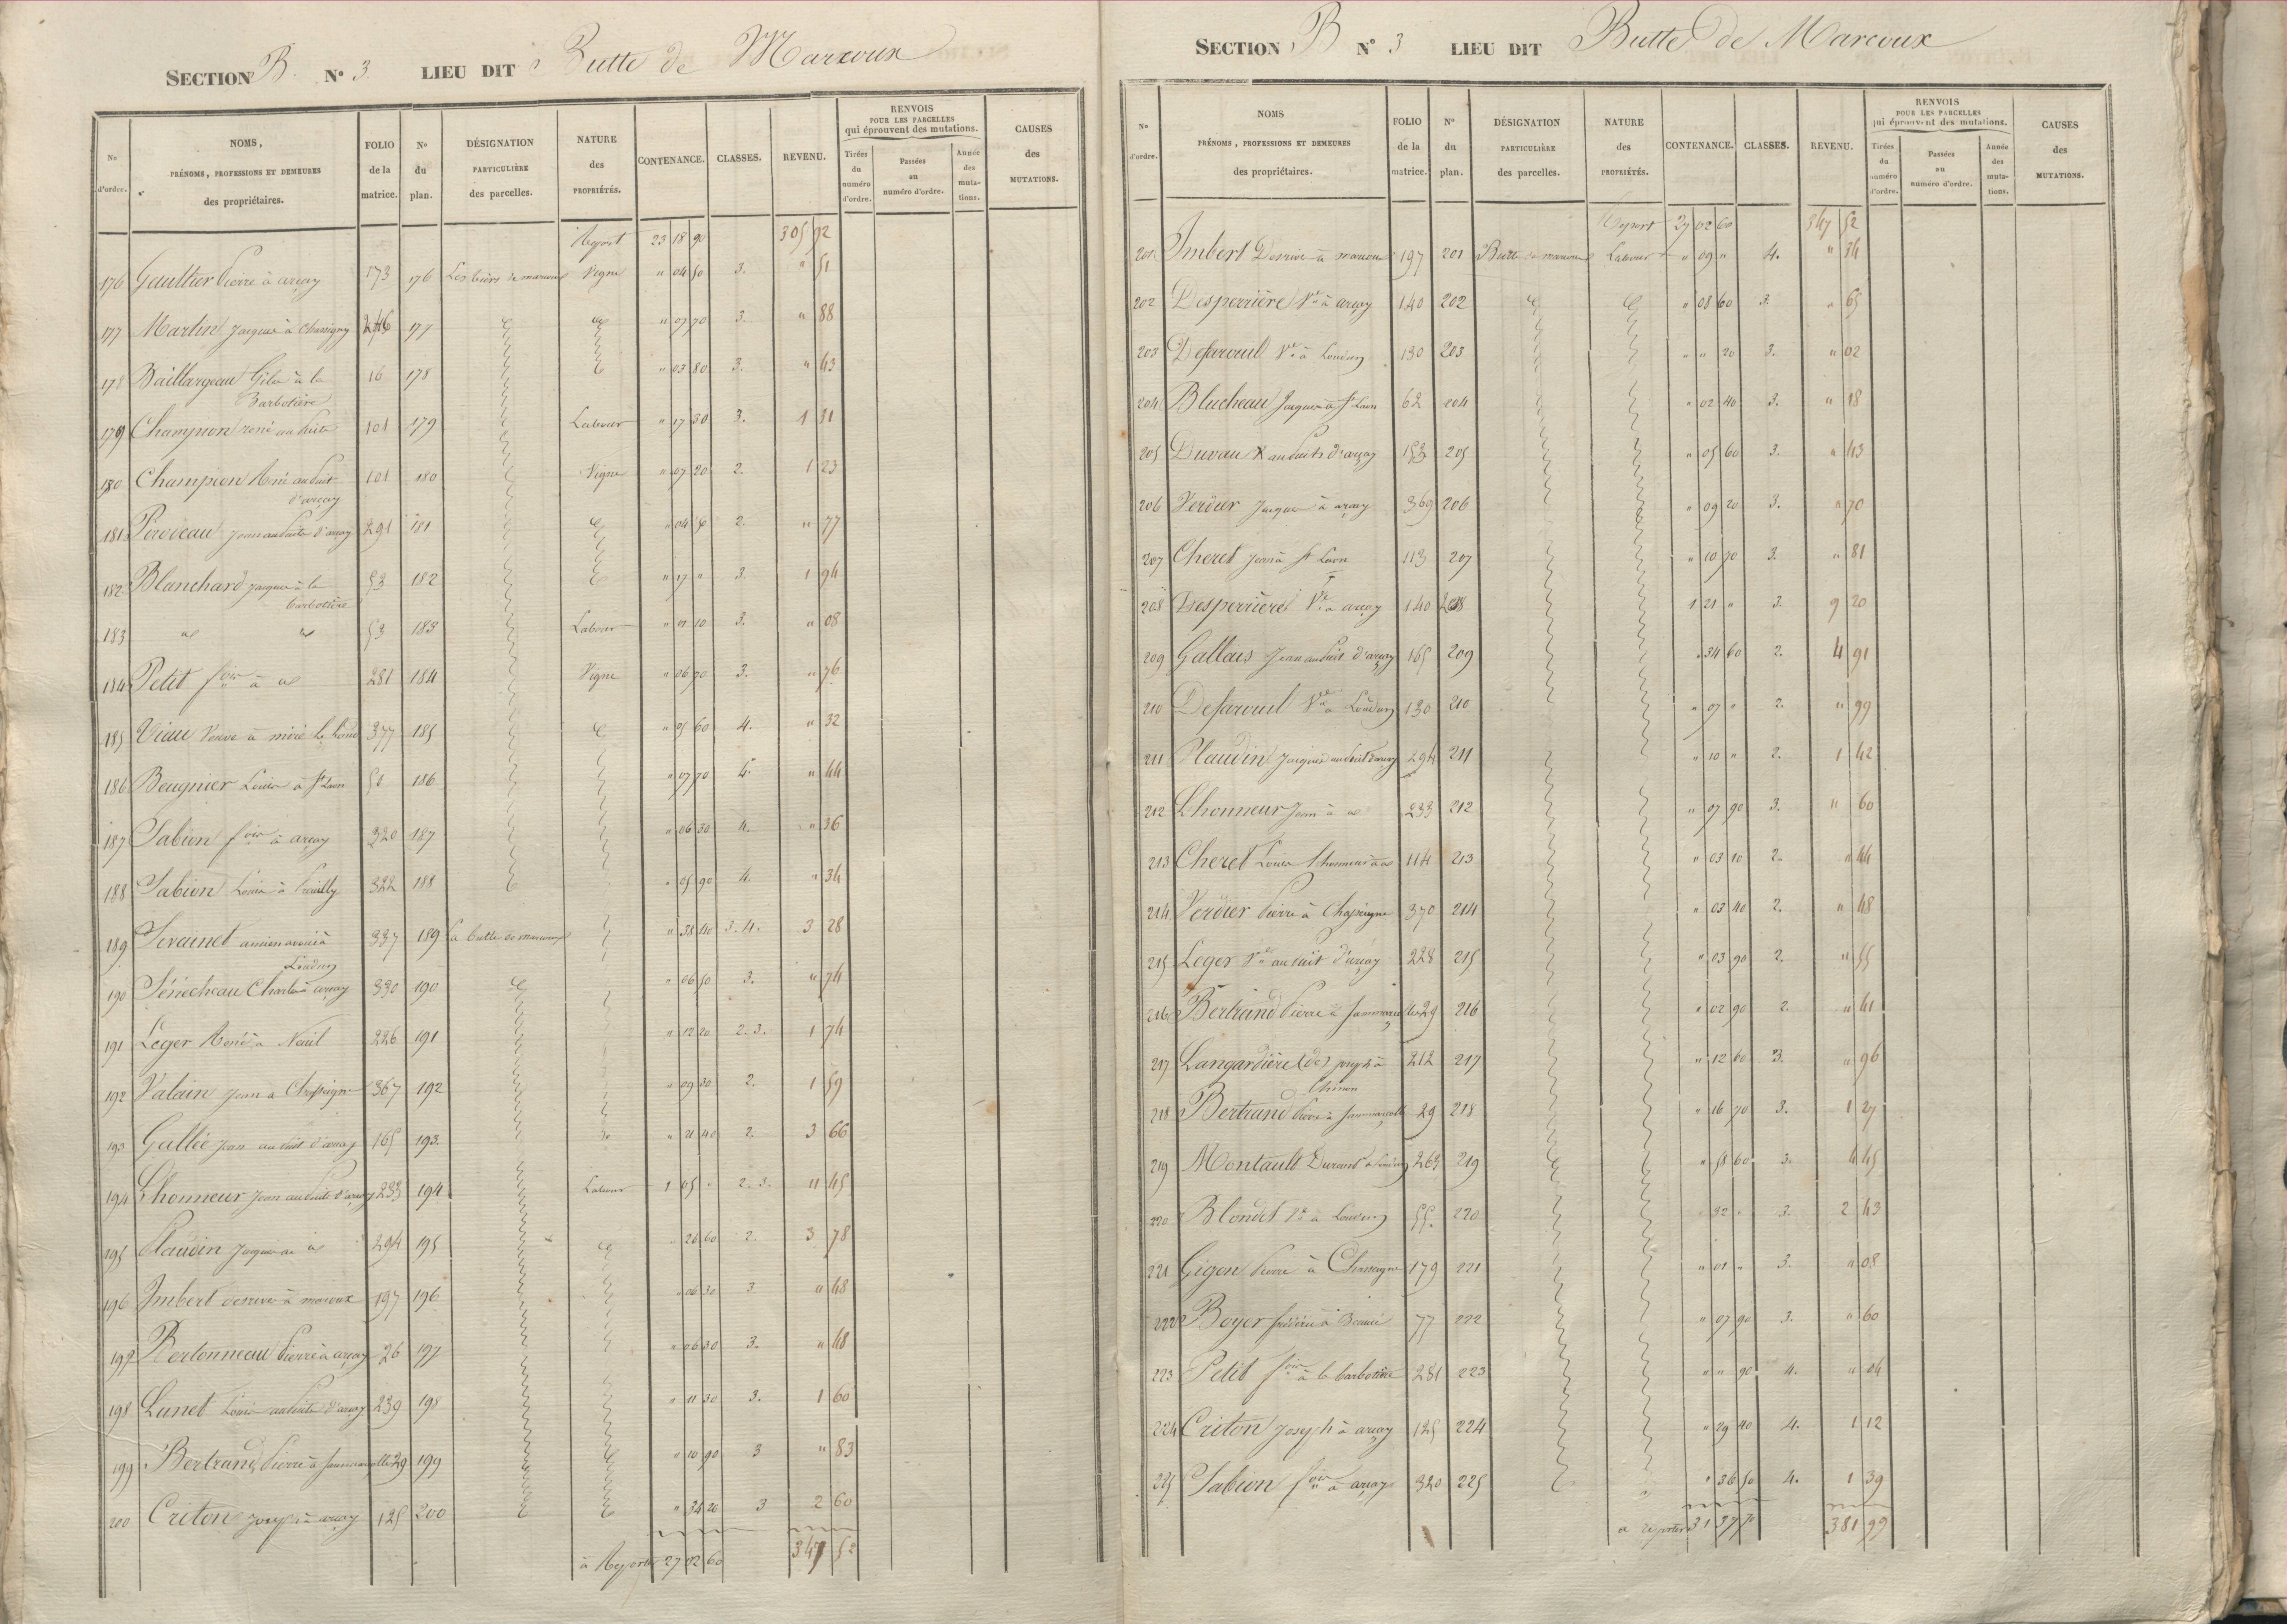 SECTION B. N° 3. LIEU DIT Butte de Marcoux
N° d'ordre. NOMS, PRÉNOMS, PROFESSIONS ET DEMEURES des propriétaires. FOLIO de la matrice. N° du plan. DÉSIGNATION PARTICULIÈRE des parcelles. NATURE des PROPRIÉTÉS. CONTENANCE. CLASSES. REVENU. RENVOIS POUR LES PARCELLES qui éprouvent des mutations. Tirées du numéro d'ordre. Passées au numéro d'ordre. Année des mutations. CAUSES des MUTATIONS.
Report 23 18 90 305 92
176 Gaultier Pierre à arçay 173 176 Vigne " 04 50 3. " 51
177 Martin Jacques à Chassigny 246 177 " 07 70 3. " 88
178 Baillargeau à la 16 178 " 03 80 3. " 43
Barbotière
179 Champion rené au Puits 101 179 Labour " 17 30 3. 1 31
180 Champion René au Puits 101 180 Vigne " 07 20 2. 1 23
d'arçay
181 Jean au Puits d'arçay 291 181 " 04 50 2. " 77
182 Blanchard Jacques à la 53 182 " 17 " 3. 1 94
barbotière
183 id id 53 183 Labour " 01 10 3. " 08
184 Petit fois à id 281 184 Vigne " 06 70 3. " 76
185 Viau Veuve à 377 185 " 05 60 4. " 32
186 Beugnier Louis à St Laon 50 186 " 07 70 4. " 44
187 Sabion fois à arçay 320 187 " 06 30 4. " 36
188 Sabion Louis à 322 188 " 05 90 4. " 34
189 ancien avoué à 337 189 La butte de marcoux " 38 40 3. 4. 3 28
Loudun
190 Sénécheau Charles à arçay 330 190 " 06 50 3. " 74
191 Leger René à Neuil 226 191 " 12 20 2. 3. 1 74
192 Valain Jean à Chasseigne 367 192 " 09 30 2. 1 59
193 Gallée Jean au puit d'arçay 165 193 " 21 40 2. 3 66
194 Lhonneur Jean au Puits d'arçay 233 194 Labour 1 05 " 2. 3. 11 45
195 Plaudin Jacques au id 294 195 " 26 60 2. 3 78
196 Imbert à marcoux 197 196 " 06 30 3 " 48
197 Bertonneau Pierre à arçay 26 197 " 06 30 3. " 48
198 Lunet Louis au Puits d'arçay 239 198 " 11 30 3. 1 60
199 Bertrand Pierre à Sammarçolle 29 199 " 10 90 3 " 83
200 Criton Joseph à arçay 125 200 " 34 20 3 2 60
à Reporter 27 02 60 347 52
SECTION B N° 3 LIEU DIT Butte de Marcoux
N° d'ordre. NOMS PRÉNOMS, PROFESSIONS ET DEMEURES des propriétaires. FOLIO de la matrice. N° du plan. DÉSIGNATION PARTICULIÈRE des parcelles. NATURE des PROPRIÉTÉS. CONTENANCE. CLASSES. REVENU. RENVOIS POUR LES PARCELLES qui éprouvent des mutations. Tirées du numéro d'ordre. Passées au numéro d'ordre. Année des mutations. CAUSES des MUTATIONS.
Report 27 02 60 347 52
201 Imbert à marcoux 197 201 Butte de marcoux Labour " 09 " 4. " 34
202 Desperrière Ve à arçay 140 202 " 08 60 3. " 65
203 Ve à Loudun 130 203 " " 20 3. " 02
204 Blucheau Jacques à St Laon 62 204 " 02 40 3. " 18
205 Duvau au Puits d'arçay 153 205 " 05 60 3. " 43
206 Verdier Jacques à arçay 369 206 " 09 20 3. " 70
207 Cheret Jean à St Laon 113 207 " 10 70 3. " 81
208 Desperrière Ve à arçay 140 208 1 21 " 3. 9 20
209 Gallais Jean au Puit d'arçay 165 209 " 34 60 2. 4 91
210 Ve à Loudun 130 210 " 07 " 2. " 99
211 Plaudin Jacques au Puit d'arçay 294 211 " 10 " 2. 1 42
212 Lhonneur Jean à id 233 212 " 07 90 3. " 60
213 Cheret Louis Lhonneur à id 114 213 " 03 10 2. " 44
214 Verdier Pierre à Chasseigne 370 214 " 03 40 2. " 48
215 Leger Ve au Puit d'arçay 228 215 " 03 90 2. " 55
216 Bertrand Pierre à Sammarçolle 29 216 " 02 90 2. " 41
217 Langardière (de) Joseph à 212 217 " 12 60 3. " 96
Chinon
218 Bertrand Pierre à Sammarçolle 29 218 " 16 70 3. 1 27
219 Montault Durand à Loudun 263 219 " 58 60 3. 4 45
220 Blondet Ve à Loudun 55 220 " 32 " 3. 2 43
221 Gigon Pierre à Chasseigne 179 221 " 01 " 3. " 08
222 Boyer frédéric à 77 222 " 07 90 3. " 60
223 Petit fois à la barbotine 281 223 " " 90 4. " 04
224 Criton Joseph à arçay 125 224 " 29 40 4. 1 12
225 Sabion fois à arçay 320 225 " 36 50 4. 1 39
à reporter 31 37 70 381 99